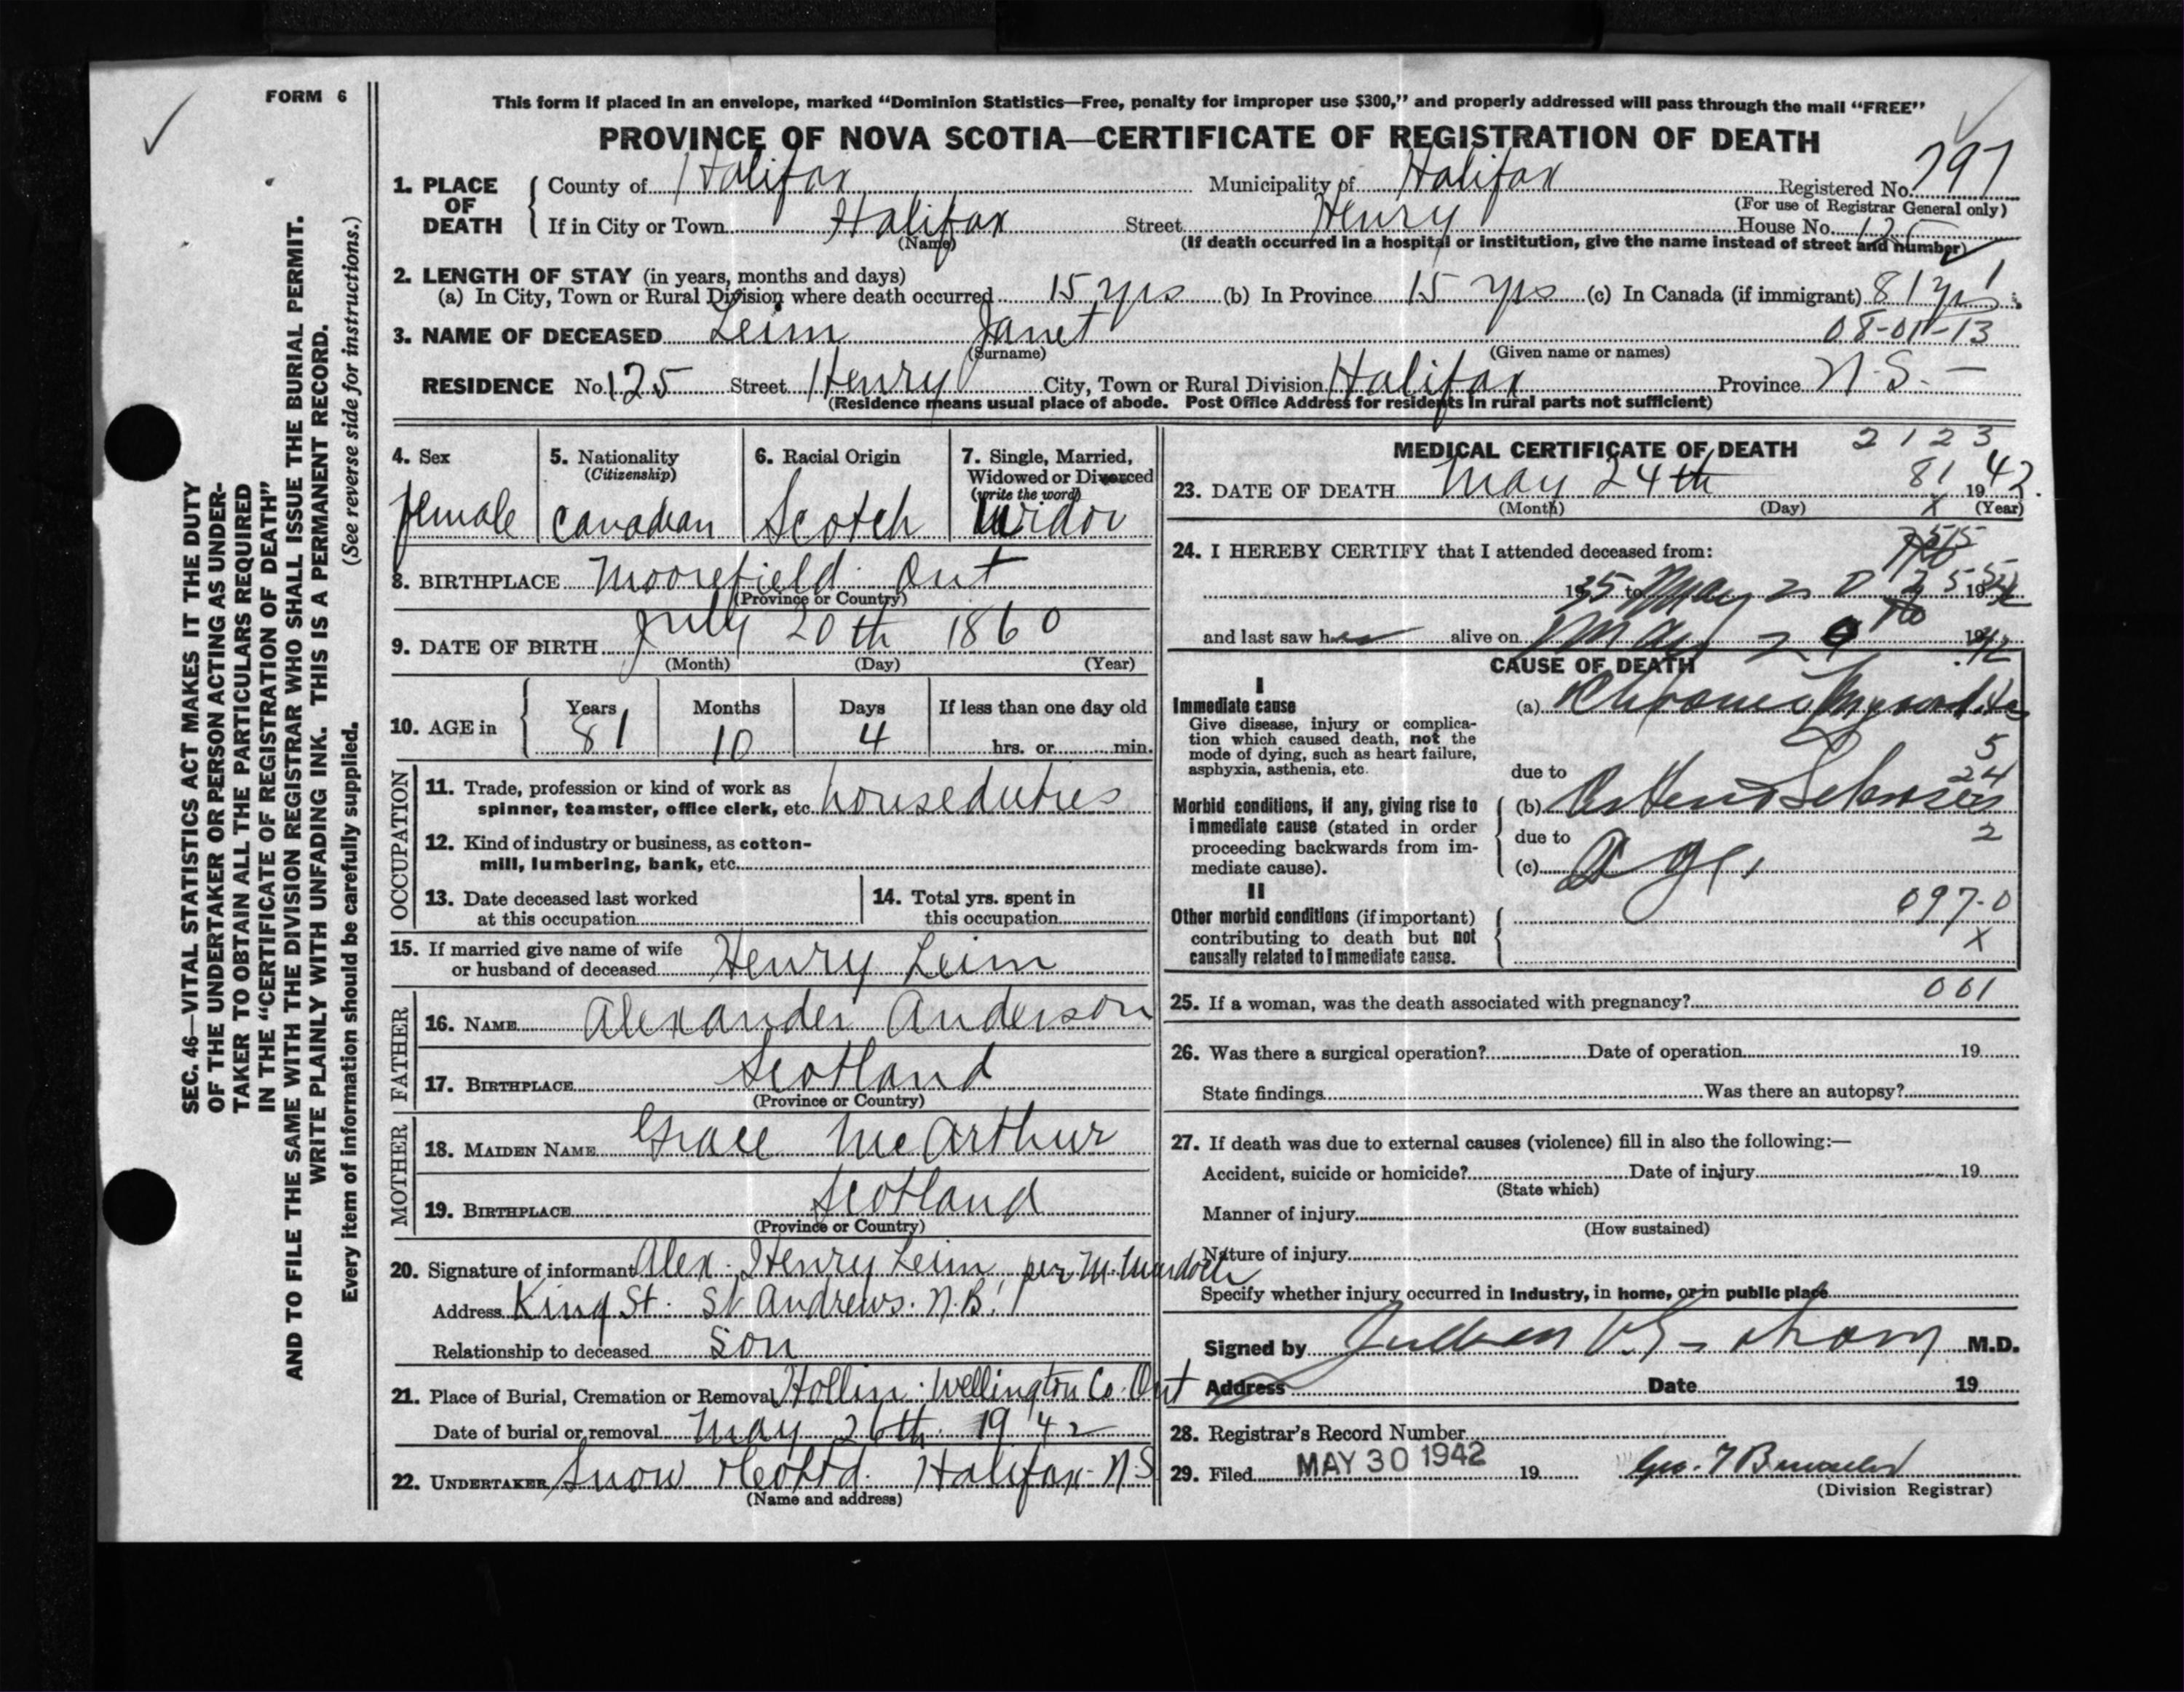 FORM 6
This form if placed in an envelope, marked “Dominion Statistics—Free, penalty for improper use $300,” and properly addressed will pass through the mail “FREE”
PROVINCE OF NOVA SCOTIA—CERTIFICATE OF REGISTRATION OF DEATH
1. PLACE OF DEATH County of Halifax Municipality of Halifax Registered No. 797
(For use of Registrar General only)
If in City or Town Halifax Street Henry House No. 125
(Name) (If death occurred in a hospital or institution, give the name instead of street and number)
2. LENGTH OF STAY (in years, months and days)
(a) In City, Town or Rural Division where death occurred 15 yrs (b) In Province 15 yrs (c) In Canada (if immigrant) 81 yrs
08-01-13
3. NAME OF DECEASED Leim Janet
(Surname) (Given name or names)
RESIDENCE No. 125 Street Henry City, Town or Rural Division Halifax Province N.S.
(Residence means usual place of abode. Post Office Address for residents in rural parts not sufficient)
4. Sex
female
5. Nationality
(Citizenship)
Canadian
6. Racial Origin
Scotch
7. Single, Married,
Widowed or Divorced
(write the word)
8. BIRTHPLACE Moorefield Ont
(Province or Country)
9. DATE OF BIRTH July 20th 1860
(Month) (Day) (Year)
10. AGE in Years Months Days If less than one day old
81 10 4 hrs. or min.
OCCUPATION
11. Trade, profession or kind of work as
spinner, teamster, office clerk, etc. houseduties
12. Kind of industry or business, as cotton-
mill, lumbering, bank, etc.
13. Date deceased last worked
at this occupation
14. Total yrs. spent in
this occupation
15. If married give name of wife
or husband of deceased Henry Leim
FATHER
16. NAME Alexander Anderson
17. BIRTHPLACE Scotland
(Province or Country)
MOTHER
18. MAIDEN NAME Grace McArthur
19. BIRTHPLACE Scotland
(Province or Country)
20. Signature of informant Alex. Henry Leim per M. Murdoch
Address King St. St Andrews. N.B.
Relationship to deceased son
21. Place of Burial, Cremation or Removal Hollin. Wellington Co. Ont
Date of burial or removal May 26th 1942
22. UNDERTAKER Snow & Co Ltd. Halifax N.S.
(Name and address)
MEDICAL CERTIFICATE OF DEATH 2123
81
23. DATE OF DEATH May 24th 1942.
(Month) (Day) x (Year)
24. I HEREBY CERTIFY that I attended deceased from:
1935 to May 19
and last saw her alive on May 1942
CAUSE OF DEATH
I
Immediate cause
Give disease, injury or complica-
tion which caused death, not the
mode of dying, such as heart failure,
asphyxia, asthenia, etc.
(a) Chronic Myocarditis
5
24
due to
Morbid conditions, if any, giving rise to
immediate cause (stated in order
proceeding backwards from im-
mediate cause).
(b) Arterio Sclerosis
due to 2
(c) Age.
II
Other morbid conditions (if important)
contributing to death but not
causally related to immediate cause.
097-0
X
001
25. If a woman, was the death associated with pregnancy?
26. Was there a surgical operation? Date of operation 19
State findings Was there an autopsy?
27. If death was due to external causes (violence) fill in also the following:—
Accident, suicide or homicide? Date of injury 19
(State which)
Manner of injury
(How sustained)
Nature of injury
Specify whether injury occurred in Industry, in home, or in public place
Signed by M.D.
Address Date 19
28. Registrar's Record Number
29. Filed MAY 30 1942 19 Geo. F
(Division Registrar)
SEC. 46—VITAL STATISTICS ACT MAKES IT THE DUTY
OF THE UNDERTAKER OR PERSON ACTING AS UNDER-
TAKER TO OBTAIN ALL THE PARTICULARS REQUIRED
IN THE “CERTIFICATE OF REGISTRATION OF DEATH”
AND TO FILE THE SAME WITH THE DIVISION REGISTRAR WHO SHALL ISSUE THE BURIAL PERMIT.
WRITE PLAINLY WITH UNFADING INK. THIS IS A PERMANENT RECORD.
Every item of information should be carefully supplied. (See reverse side for instructions.)